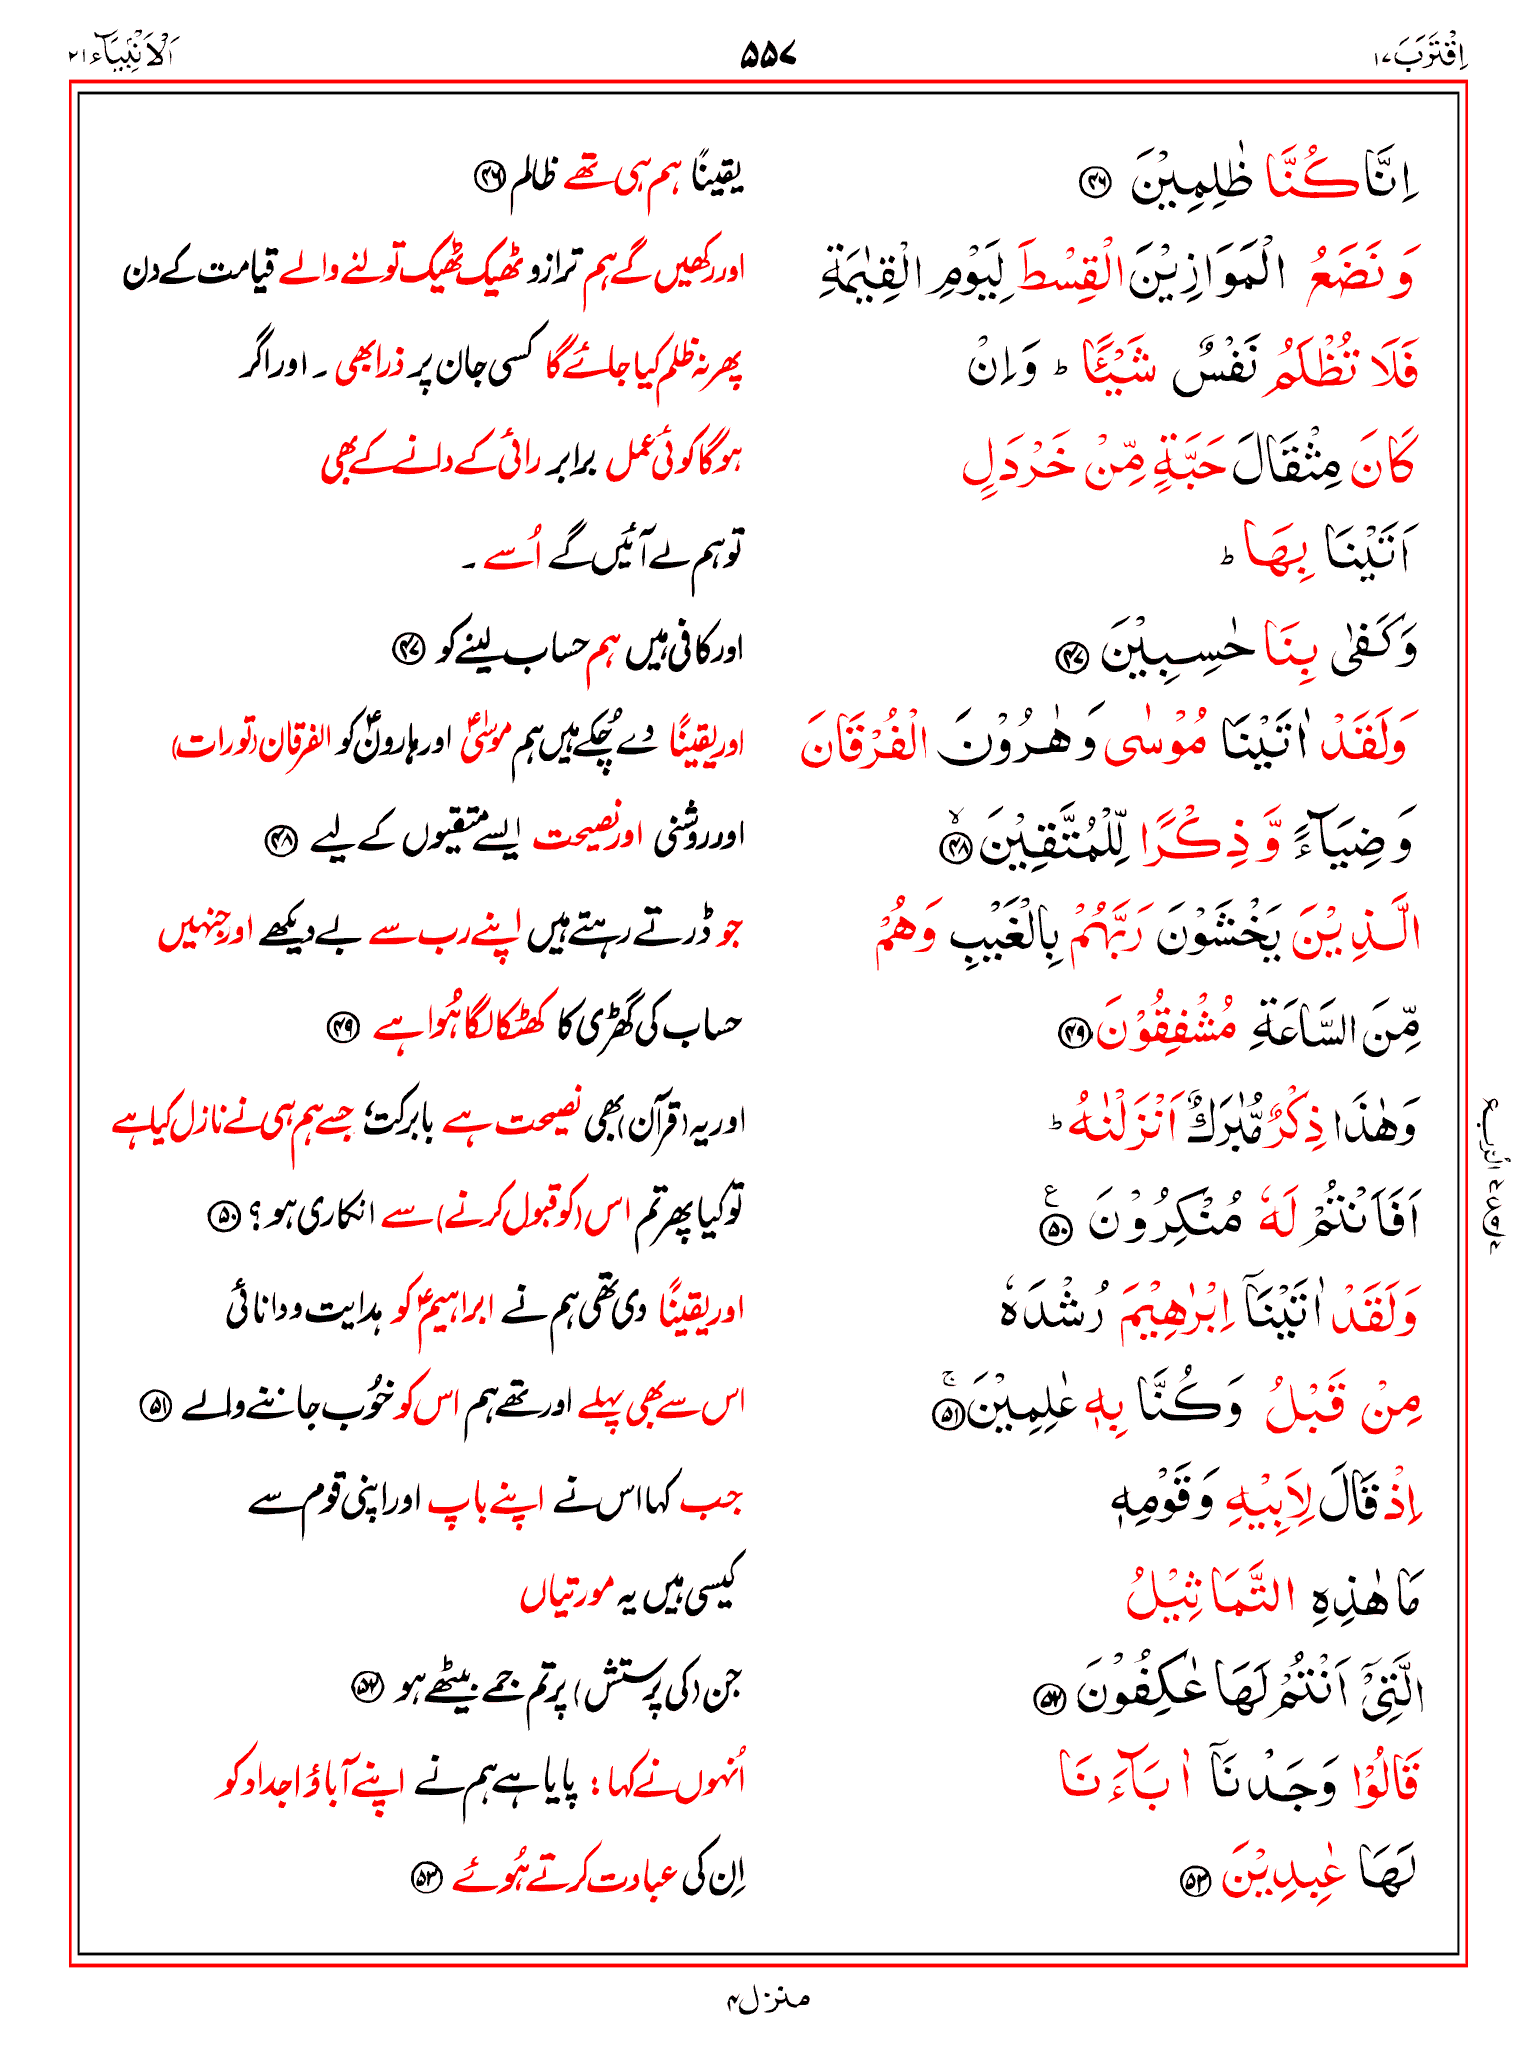 اِقْتَرَبَ ۱۷ ۵۵۷ اَلْاَنْۢبِيَآء ۲۱
اِنَّا كُنَّا ظٰلِمِيْنَ ۴۶ یقیناً ہم ہی تھے ظالم ۴۶
وَ نَضَعُ الْمَوَازِيْنَ الْقِسْطَ لِيَوْمِ الْقِيٰمَةِ اور رکھیں گے ہم ترازو ٹھیک ٹھیک تولنے والے قیامت کے دن
فَلَا تُظْلَمُ نَفْسٌ شَيْـًٔا ؕ وَ اِنْ پھر نہ ظلم کیا جائے گا کسی جان پر ذرا بھی ۔ اور اگر
كَانَ مِثْقَالَ حَبَّةٍ مِّنْ خَرْدَلٍ ہوگا کوئی عمل برابر رائی کے دانے کے بھی
اَتَيْنَا بِهَا ؕ تو ہم لے آئیں گے اُسے ۔
وَ كَفٰى بِنَا حٰسِبِيْنَ ۴۷ اور کافی ہیں ہم حساب لینے کو ۴۷
وَ لَقَدْ اٰتَيْنَا مُوْسٰى وَ هٰرُوْنَ الْفُرْقَانَ اور یقینًا دے چُکے ہیں ہم موسٰیؑ اور ہارونؑ کو الفرقان (تورات)
وَ ضِيَآءً وَّ ذِكْرًا لِّلْمُتَّقِيْنَ ۙ ۴۸ اور روشنی اور نصیحت ایسے متقیوں کے لیے ۴۸
الَّذِيْنَ يَخْشَوْنَ رَبَّهُمْ بِالْغَيْبِ وَ هُمْ جو ڈرتے رہتے ہیں اپنے رب سے بے دیکھے اور جنہیں
مِّنَ السَّاعَةِ مُشْفِقُوْنَ ۴۹ حساب کی گھڑی کا کھٹکا لگا ہُوا ہے ۴۹
وَ هٰذَا ذِكْرٌ مُّبٰرَكٌ اَنْزَلْنٰهُ ؕ اور یہ (قرآن) بھی نصیحت ہے بابرکت، جسے ہم ہی نے نازل کیا ہے
اَفَاَنْتُمْ لَهٗ مُنْكِرُوْنَ ۵۰ ع تو کیا پھر تم اس (کو قبول کرنے) سے انکاری ہو؟ ۵۰
وَ لَقَدْ اٰتَيْنَاۤ اِبْرٰهِيْمَ رُشْدَهٗ اور یقینًا دی تھی ہم نے ابراہیمؑ کو ہدایت و دانائی
مِنْ قَبْلُ وَ كُنَّا بِهٖ عٰلِمِيْنَ ۚ ۵۱ اس سے بھی پہلے اور تھے ہم اس کو خوُب جاننے والے ۵۱
اِذْ قَالَ لِاَبِيْهِ وَ قَوْمِهٖ جب کہا اس نے اپنے باپ اور اپنی قوم سے
مَا هٰذِهِ التَّمَاثِيْلُ کیسی ہیں یہ مورتیاں
الَّتِيْۤ اَنْتُمْ لَهَا عٰكِفُوْنَ ۵۲ جن (کی پرستش) پر تم جمے بیٹھے ہو ۵۲
قَالُوْا وَجَدْنَاۤ اٰبَآءَنَا اُنہوں نے کہا: پایا ہے ہم نے اپنے آباؤ اجداد کو
لَهَا عٰبِدِيْنَ ۵۳ اِن کی عبادت کرتے ہُوئے ۵۳
منزل ۴